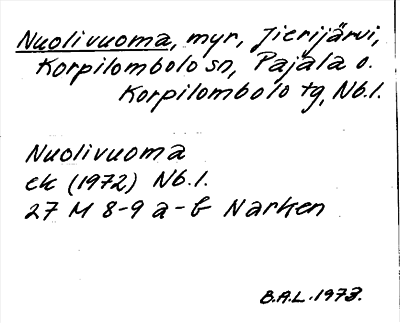 Nuolivuoma, myr, Jierijärvi,
Korpilombolo sn, Pajala o.
Korpilombolo tg, Nb.l.
Nuolivuoma
ek (1972) Nb.l.
27 M 8-9 a-b Narken
B.A.L. 1973.